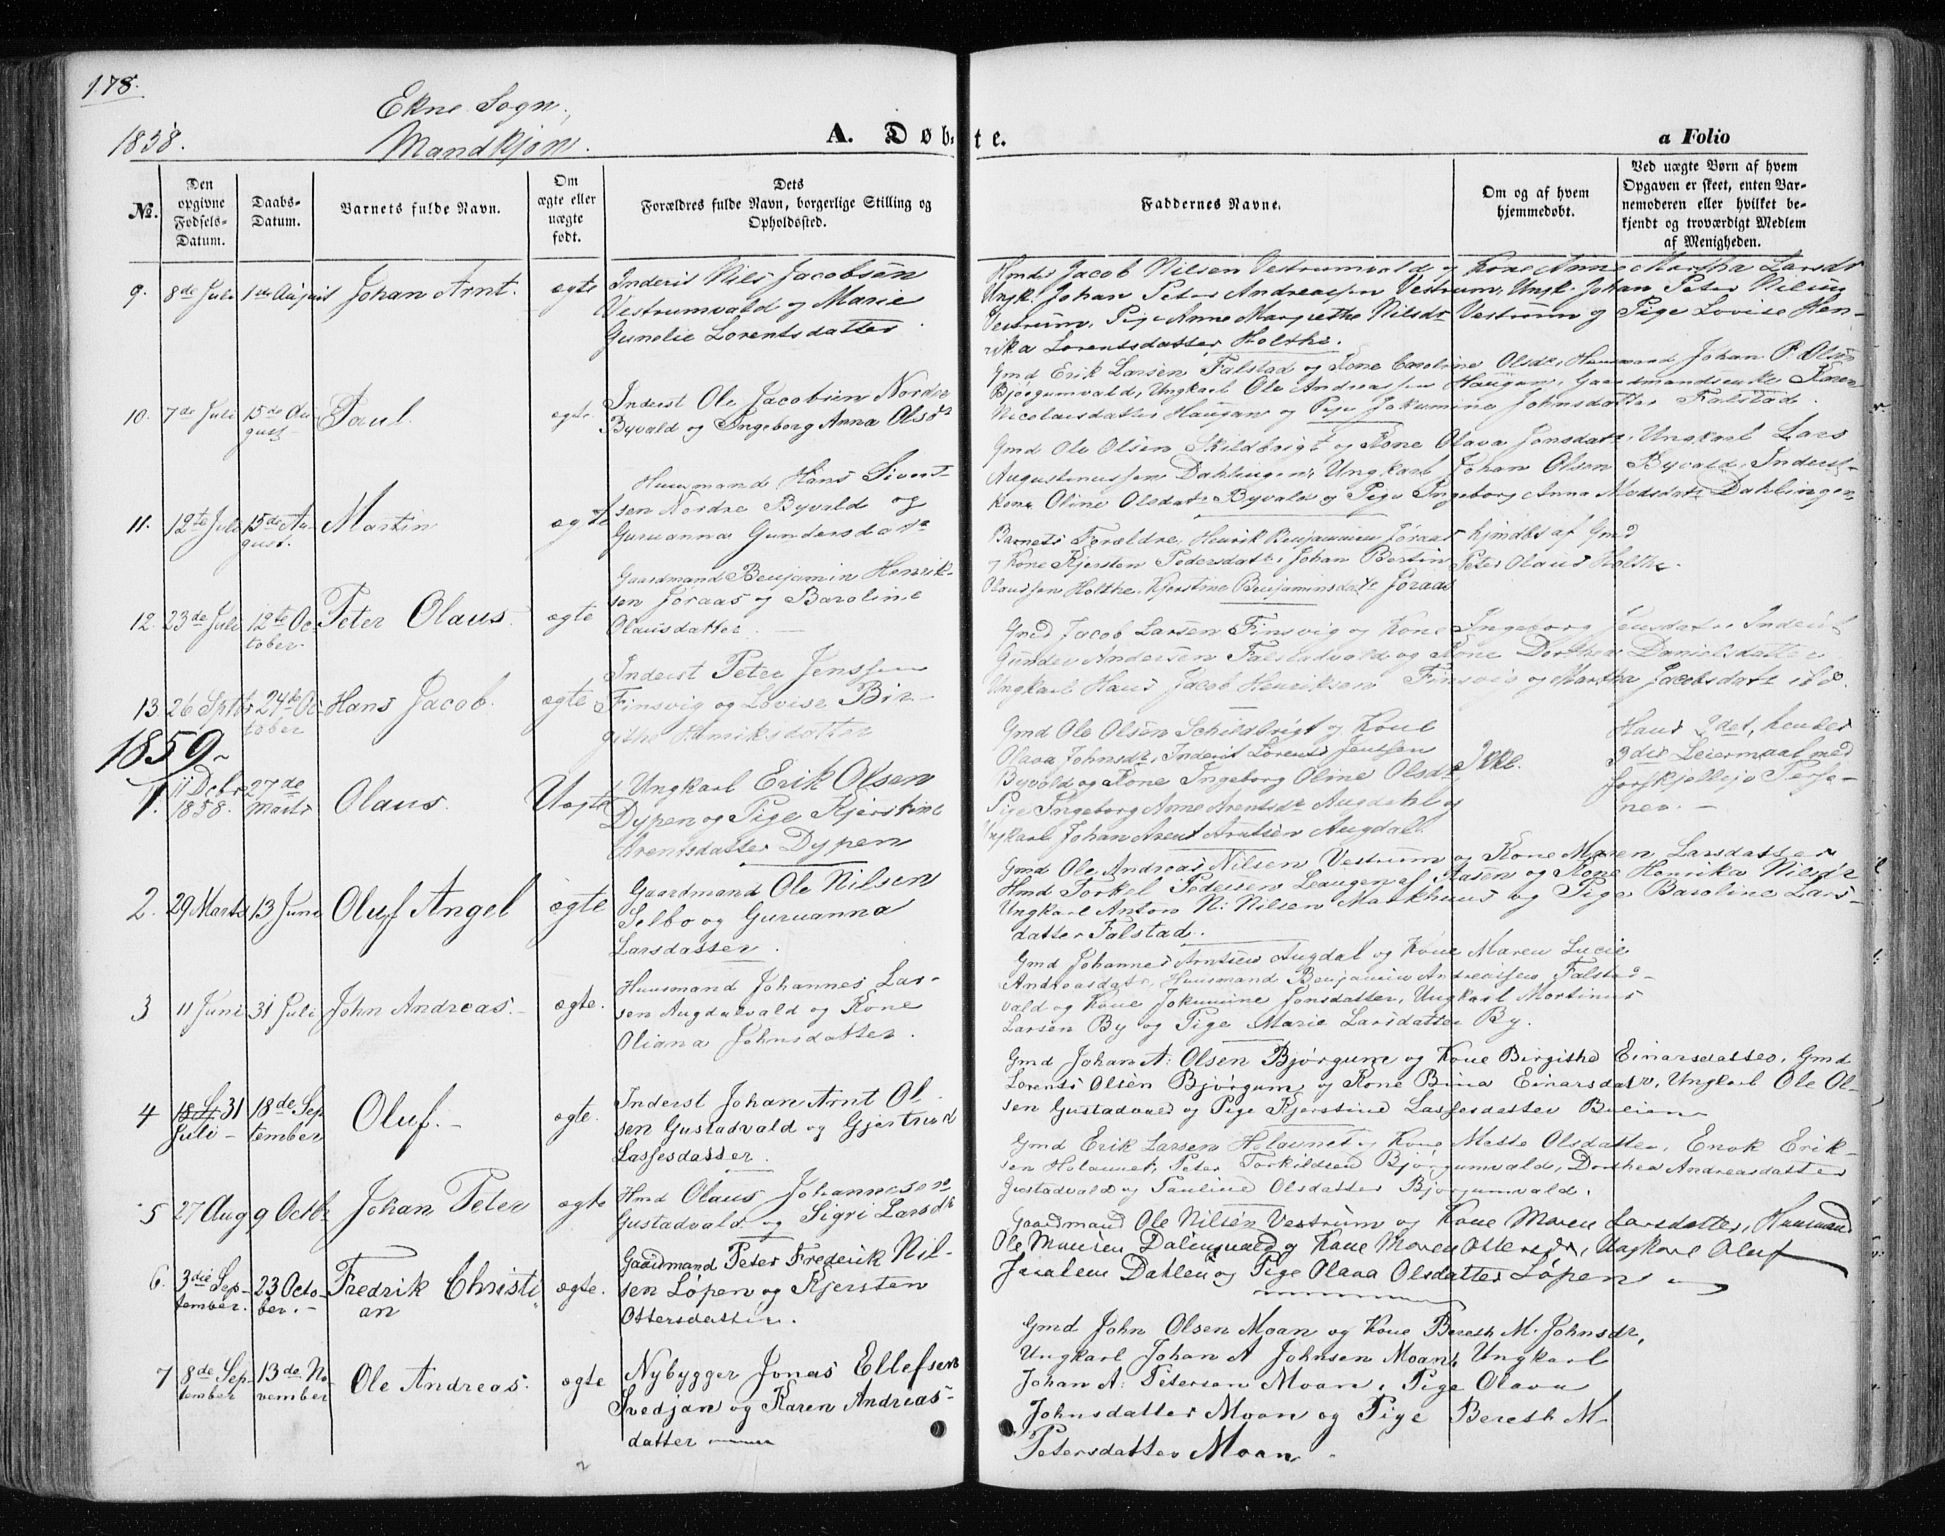 178.
Ekne Sogn,
1858.
Mandkjøn.
A. Døbte.
a Folio
No.
Den opgivne Fødsels-Datum.
Daabs-Datum.
Barnets fulde Navn.
Om ægte eller uægte født.
Dets Forældres fulde Navn, borgerlige Stilling og Opholdssted.
Faddernes Navne.
Om og af hvem hjemmedøbt.
Ved uægte Børn af hvem Opgaven er skeet, enten Barnemoderen eller hvilket bekjendt og troværdigt Medlem af Menigheden.
9. 8de Juli 1ste August Johan Arnt. ægte
Inderst Nils Jacobsen
Vestrumvald og Marie
Gunelie Lorentsdatter
Hmd Jacob Nilsen Vestrumvald og Kone Anne Martha Larsdr
Ungk. Johan Peter Andreassen Vestrum, Ungk. Johan Peter Nilsen
Vestrum, Pige Anne Margrethe Nilsdr Vestrum og Pige Lovise Hen-
rika Lorentsdatter Holthe.
10. 7de Juli 15de August Paul. ægte
Inderst Ole Jacobsen Nordre
Byvald og Ingeborg Anna Olsdr
Gmd Erik Larsen Falstad og Kone Caroline Olsdr, Huusmand Johan P. Olsen
Bjørgumvald, Ungkarl Ole Andreassen Haugan, Gaardmandsenke Karen
Nicolaisdatter Haugan og Pige Jokumine Johnsdatter Falstad.
11. 12te Juli 15de August. Martin ægte
Huusmand Hans Sivert-
sen Nordre Byvald og
Guruanna Gundersdatr
Gmd Ole Olsen Skildbrigt og Kone Olava Jonsdatr, Ungkarl Lars
Augustinussen Dahlingen, Ungkarl Johan Olsen Byvald, Inderst-
kone Oline Olsdatr Byvald og Pige Ingeborg Anna Madsdatr Dahlingen
12. 23de Juli 12te October. Peter Olaus. ægte
Gaardmand Benjamin Henrik-
sen Føraas og Baroline
Olausdatter.
Barnets Forældre, Henrik Benjaminsen Føraas
og Kone Kjersten Pedersdatr, Johan Bertin
Olaussen Holthe, Kjerstine Benjaminsdatr Føraas
hjmdbt af Gmd
Peter Olaus Holthe.
13. 26 Septbr 24de October Hans Jacob. ægte
Inderst Peter Jenssen
Finsvig og Lovise Bir-
githe Henriksdatter
Gmd Jacob Larsen Finsvig og Kone Ingeborg Jensdatr, Inderst
Gunder Andersen Falstadvald og Kone Dorthea Danielsdatter
Ungkarl Hans Jacob Henriksen Finsvig og Martha Jacobsdatr ibd.
1859.
1. 11 Decbr 1858. 27de Marts Olaus. Uægte
Ungkarl Erik Olsen
Dypen og Pige Kjerstine
Arentsdatter Dypen
Gmd Ole Olsen Schildbrigt og Kone
Olava Johnsdr, Inderst Lorents Jenssen
Byvald og Kone Ingeborg Oline Olsdr
Pige Ingeborg Anne Arentsdr Augdahl og
Ungkarl Johan Arent Arntsen Augdal.
Ikke.
Hans 2det, hendes
3die Leiermaal med
forskjellige Perso-
ner.
2. 29 Marts 13 Juni Oluf Angel ægte
Gaardmand Ole Nilsen
Selbo og Guruanna
Larsdatter.
Gmd Ole Andreas Nilsen Vestrum og Kone Maren Larsdatter
Hmd Torkel Pedersen Leangen af Aasen og Kone Henrika Nilsdr
Ungkarl Anton N: Nilsen Markhuus og Pige Baroline Lars-
datter Falstad.
3 11 Juni 31 Juli John Andreas. ægte.
Huusmand Johannes Lar-
sen Augdalvald og Kone
Oliana Johnsdatter.
Gmd Johannes Arntsen Augdal og Kone Maren Lucie
Andreasdatr, Huusmand Benjamin Andreassen Falstad-
vald og Kone Jokumine Jonsdatter, Ungkarl Mortinus
Larsen By og Pige Marie Larsdatter By.
4 31 Juli 18de September Oluf. ægte.
Inderst Johan Arnt Ol-
sen Gustadvald og Gjertrud
Lassesdatter.
Gmd Johan A: Olsen Bjørgum og Kone Birgithe Einarsdatter, Gmd
Lorents Olsen Bjørgum og Kone Bina Einarsdatr, Ungkarl Ole Ol-
sen Gustadvald og Pige Kjerstine Lassesdatter Bulien
5 27 Aug 9 Octbr Johan Peter ægte
Hmd Olaus Johannesen
Gustadvald og Sigri Larsdr
Gmd Erik Larsen Holavnet og Kone Mette Olsdatter, Enok Erik-
sen Holavnet, Peter Torkildsen Bjørgumvald, Dorthea Andreasdatter
Gustadvald og Pauline Olsdatter Bjørgumvald.
6. 3die September. 23 October. Fredrik Christian ægte.
Gaardmand Peter Frederik Nil-
sen Løpen og Kjersten
Ottersdatter.
Gaardmand Ole Nilsen Vestrum og Kone Maren Larsdatter, Huusmand
Ole Monsen Dalingvald og Kone Maren Ottersdr, Ungkarl Oluf
Dahlen og Pige Olava Olsdatter Løpen
7 8de September 13de November Ole Andreas. ægte
Nybygger Jonas Ellefsen
Svedjan og Karen Andreas-
datter
Gmd John Olsen Moan og Kone Bereth M. Johnsdr,
Ungkarl Johan A Johnsen Moan, Ungkarl
Johan A: Petersen Moan, Pige Olava
Johnsdatter Moan og Pige Bereth M.
Petersdatter Moan.